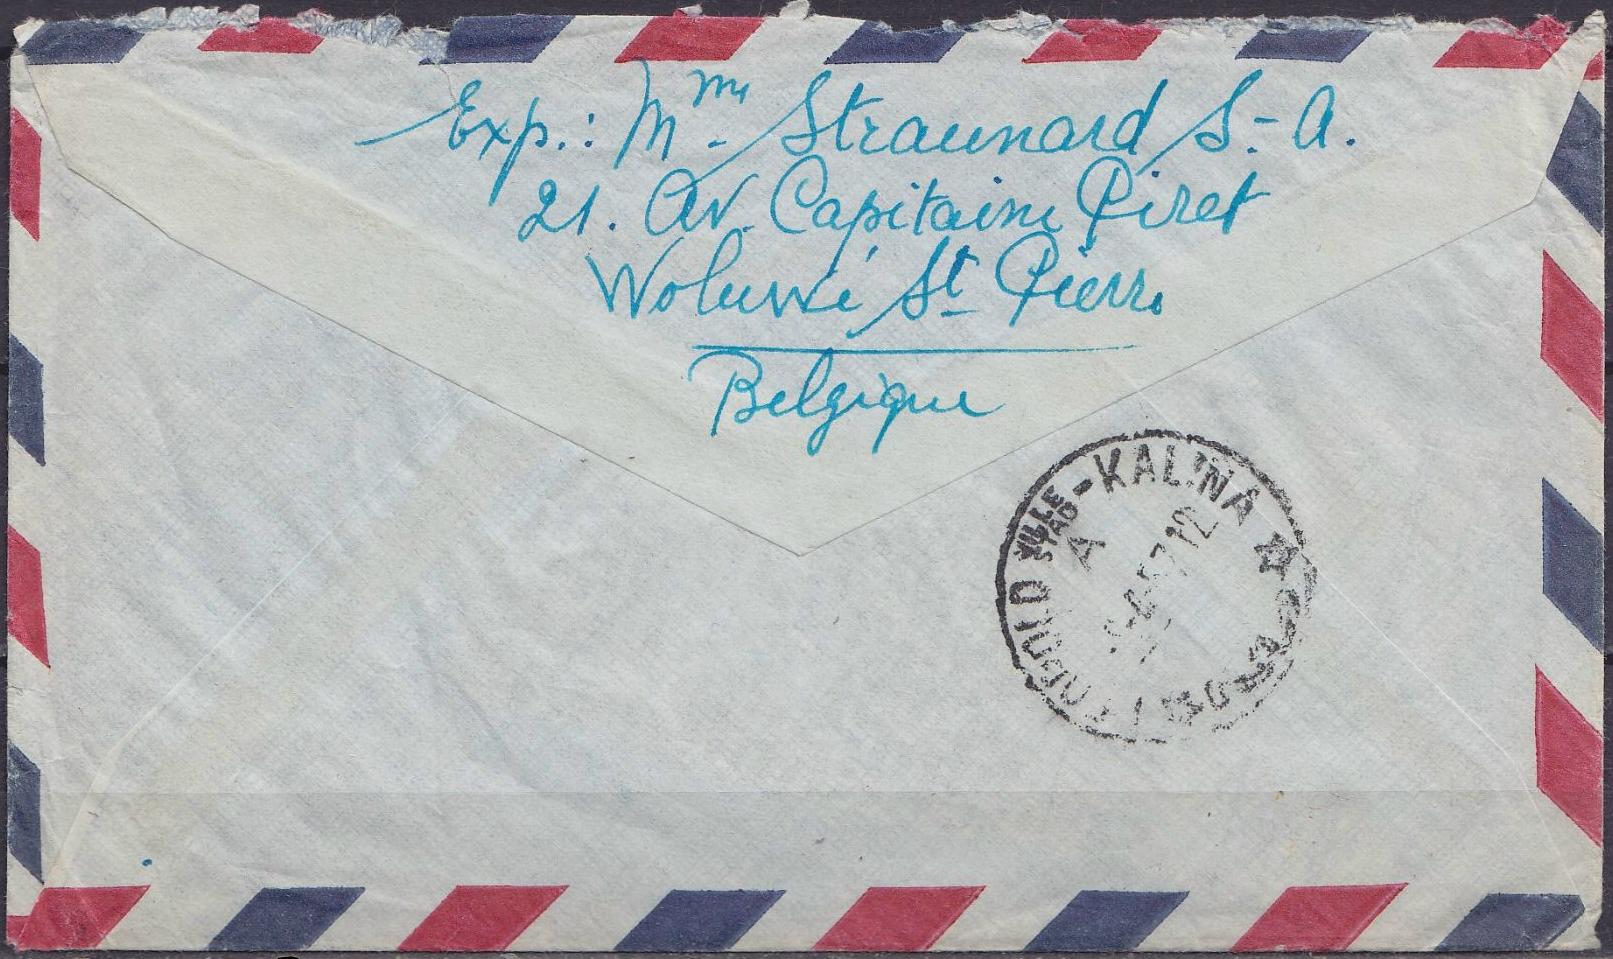 Exp.: Mme Straunard S-A.
21. Av. Capitaine Piret
Woluwé St Pierre
Belgique
LEOPOLDVILLE-KALINA
STAD
A
57 12